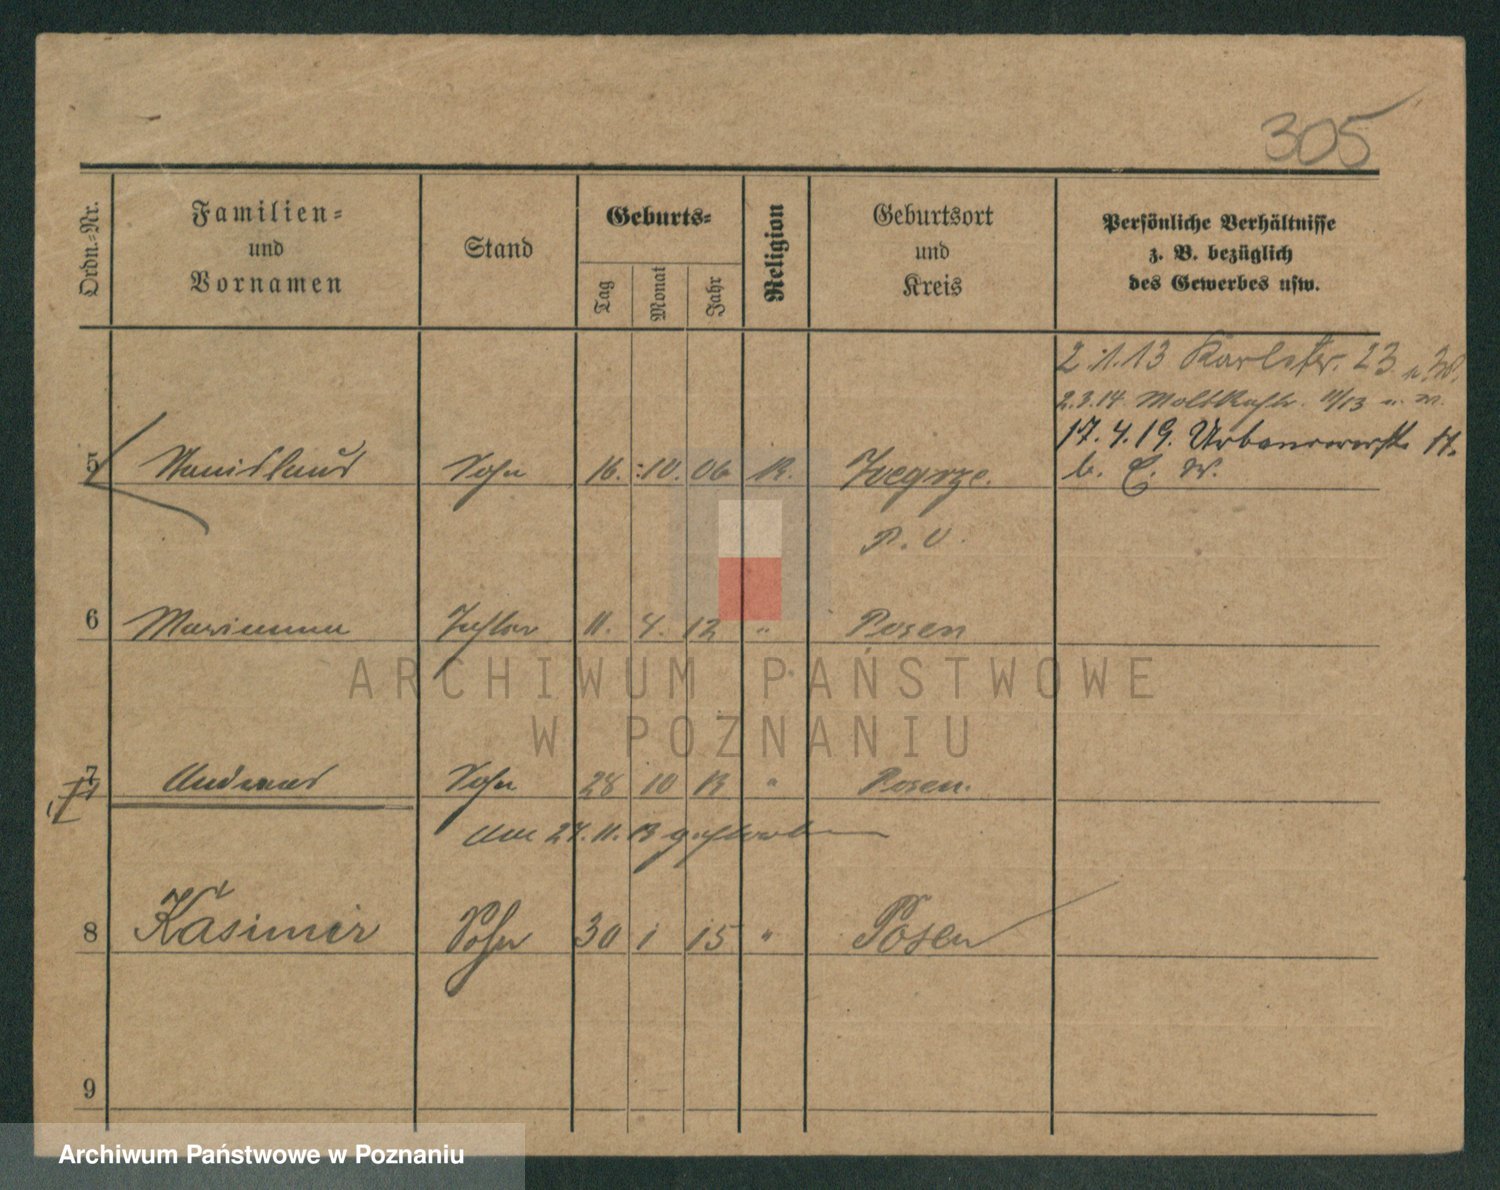 305
Ordn.=Nr.
Familien=
und
Vornamen
Stand
Geburts=
Tag
Monat
Jahr
Religion
Geburtsort
und
Kreis
Persönliche Verhältnisse
z. B. bezüglich
des Gewerbes usw.
2.1.13 Karlstr. 23
2.3.14 Moltkestr.
17.4.19.
5 Stanislaus Sohn 16. 10. 06 K. Zegrze.
P. O.
6 Marianna Tochter 11. 4. 12 " Posen
ARCHIWUM PAŃSTWOWE
W POZNANIU
7 Andreas Sohn 28 10 13 " Posen.
am 27.11.13 gestorben
8 Kasimir Sohn 30 1 15 " Posen
9
Archiwum Państwowe w Poznaniu